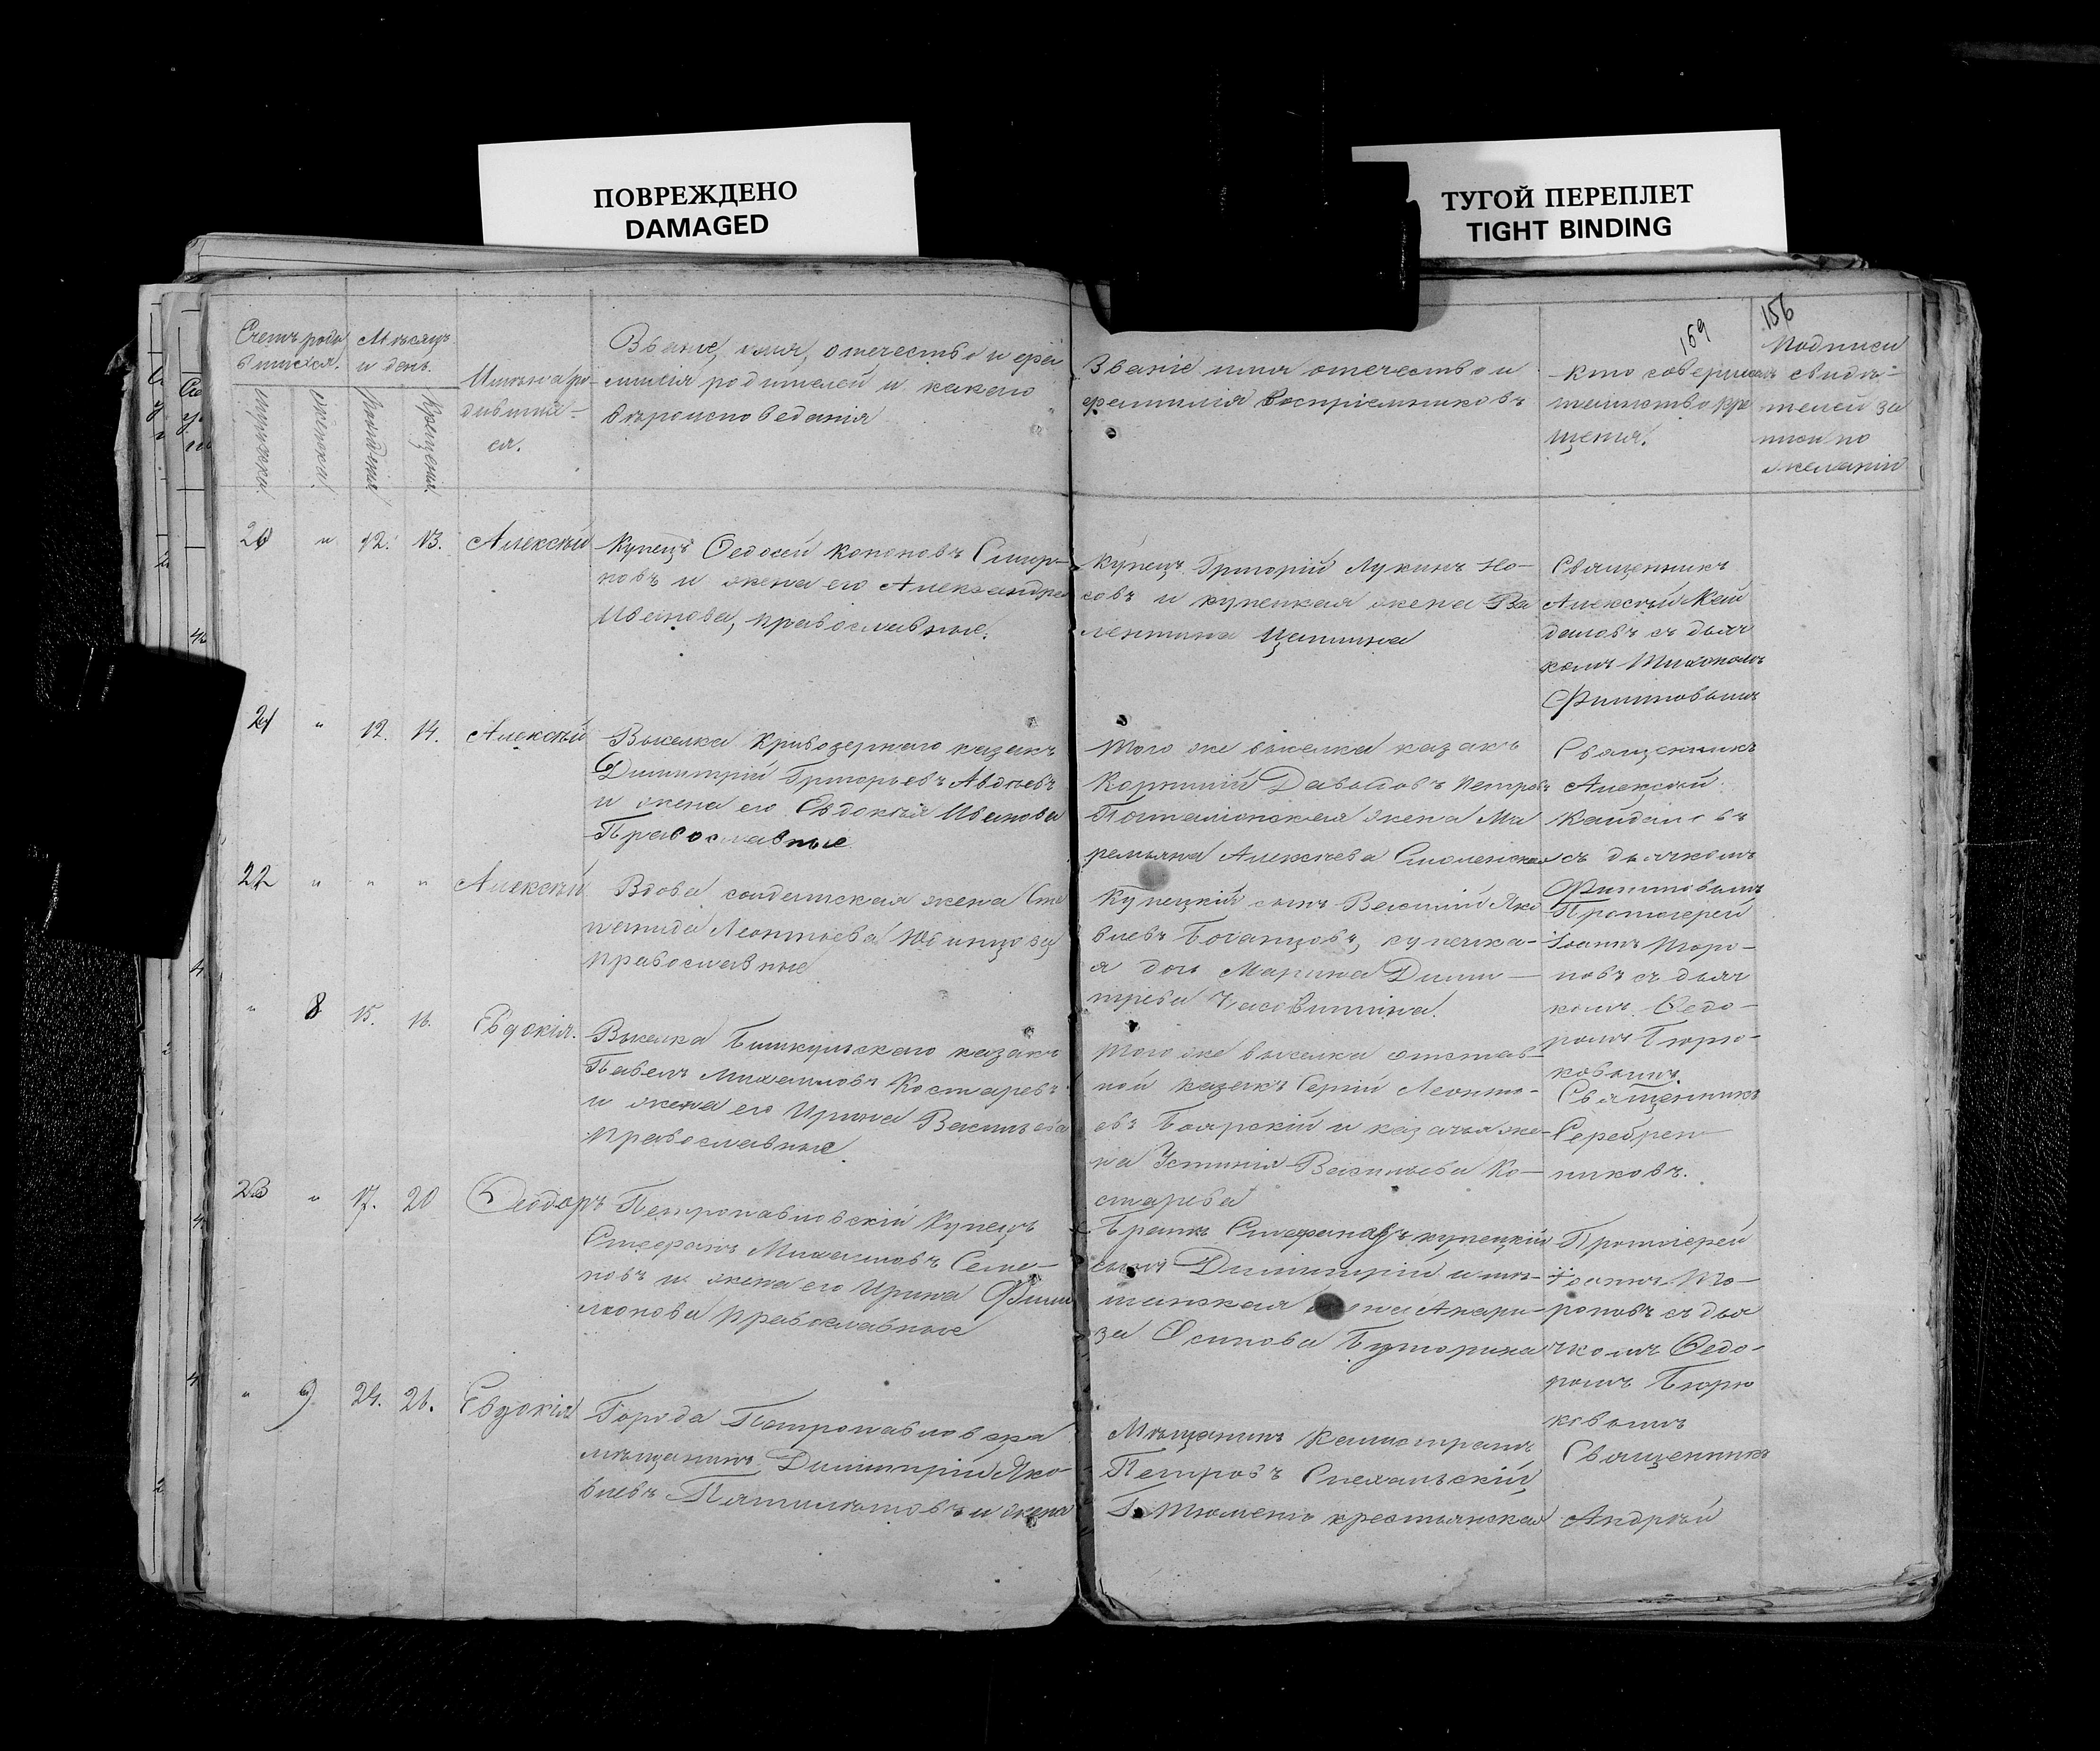 ПОВРЕЖДЕНО
DAMAGED
ТУГОЙ ПЕРЕПЛЕТ
TIGHT BINDING
169
156
Счетъ роди
вшихся.
мужска
женска
Мѣсяцъ
и день.
рожденія
Крещенія
Имена ро-
дивших-
ся.
Званіе, имя, отечество и фа
милія родителей и какого
вѣроисповеданія
Званіе имя отечество и
фамилія Воспріемниковъ
Кто совершалъ
таинство кре
щенія.
Подписи
свидѣ-
телей за
писи по
желанію
20 " 12. 13. Алексѣй
Купецъ Федосей Кононовъ Смир-
новъ и жена его Александра
Иванова, православные.
Купецъ Григорій Лукинъ Но-
совъ и купецкая жена Ва
лентина
Священникъ
Алексѣй Кай
даловъ съ дьяч
комъ Тихономъ
Филиповымъ
21 " 12. 14. Алексѣй
Выселка Кривозернаго казакъ
Димитрій Григорьевъ Авдѣевъ
и жена его Евдокія Иванова
Православные
Того же выселка казакъ
Корнилій Давыдовъ Петровъ
жена Ма
ремьяна Алексѣева Смоленская
Священникъ
Алексѣй
Кайдаловъ
съ дьячкомъ
Филиповымъ
22 " " " Алексѣй
Вдова солдатская жена Сте
панида Леонтьева
православные
Купецкій сынъ Василій Яко
влевъ Боганцовъ, купецка-
я дочь Марина Дими-
трева Часовитина.
Протоіерей
Іоаннъ Торо-
повъ съ дьяч
комъ Федо-
ромъ Бирю-
ковымъ.
" 8 15. 16. Евдокія.
Выселка Бишкульскаго казакъ
Павелъ Михаиловъ Костаревъ
и жена его Ирина Васильева
православные.
Того же выселка отстав-
ной казакъ Сергій Леонть-
евъ Боярскій и казачья же-
на Устинія Васильева Ко-
старева
Священникъ
Серебрен
никовъ.
23 " 17. 20 Феодоръ
Петропавловскій Купецъ
Стефанъ Михаиловъ Семе-
новъ и жена его Ирина Фили
монова православные
Братъ Стефановъ купецкій
сынъ Димитрій и мѣ-
щанская жена
за Осипова Буторина
Протоіерей
Іоаннъ То-
роповъ съ дья
чкомъ Федо-
ромъ Бирю
ковымъ
" 9 24. 26. Евдокія
Города Петропавловска
мѣщанинъ Димитрій Яко-
влевъ Пятилѣтовъ и жена
Мѣщанинъ Калистратъ
Петровъ Стехальскій,
Г. Тюмени крестьянская
Священникъ
Андрѣй